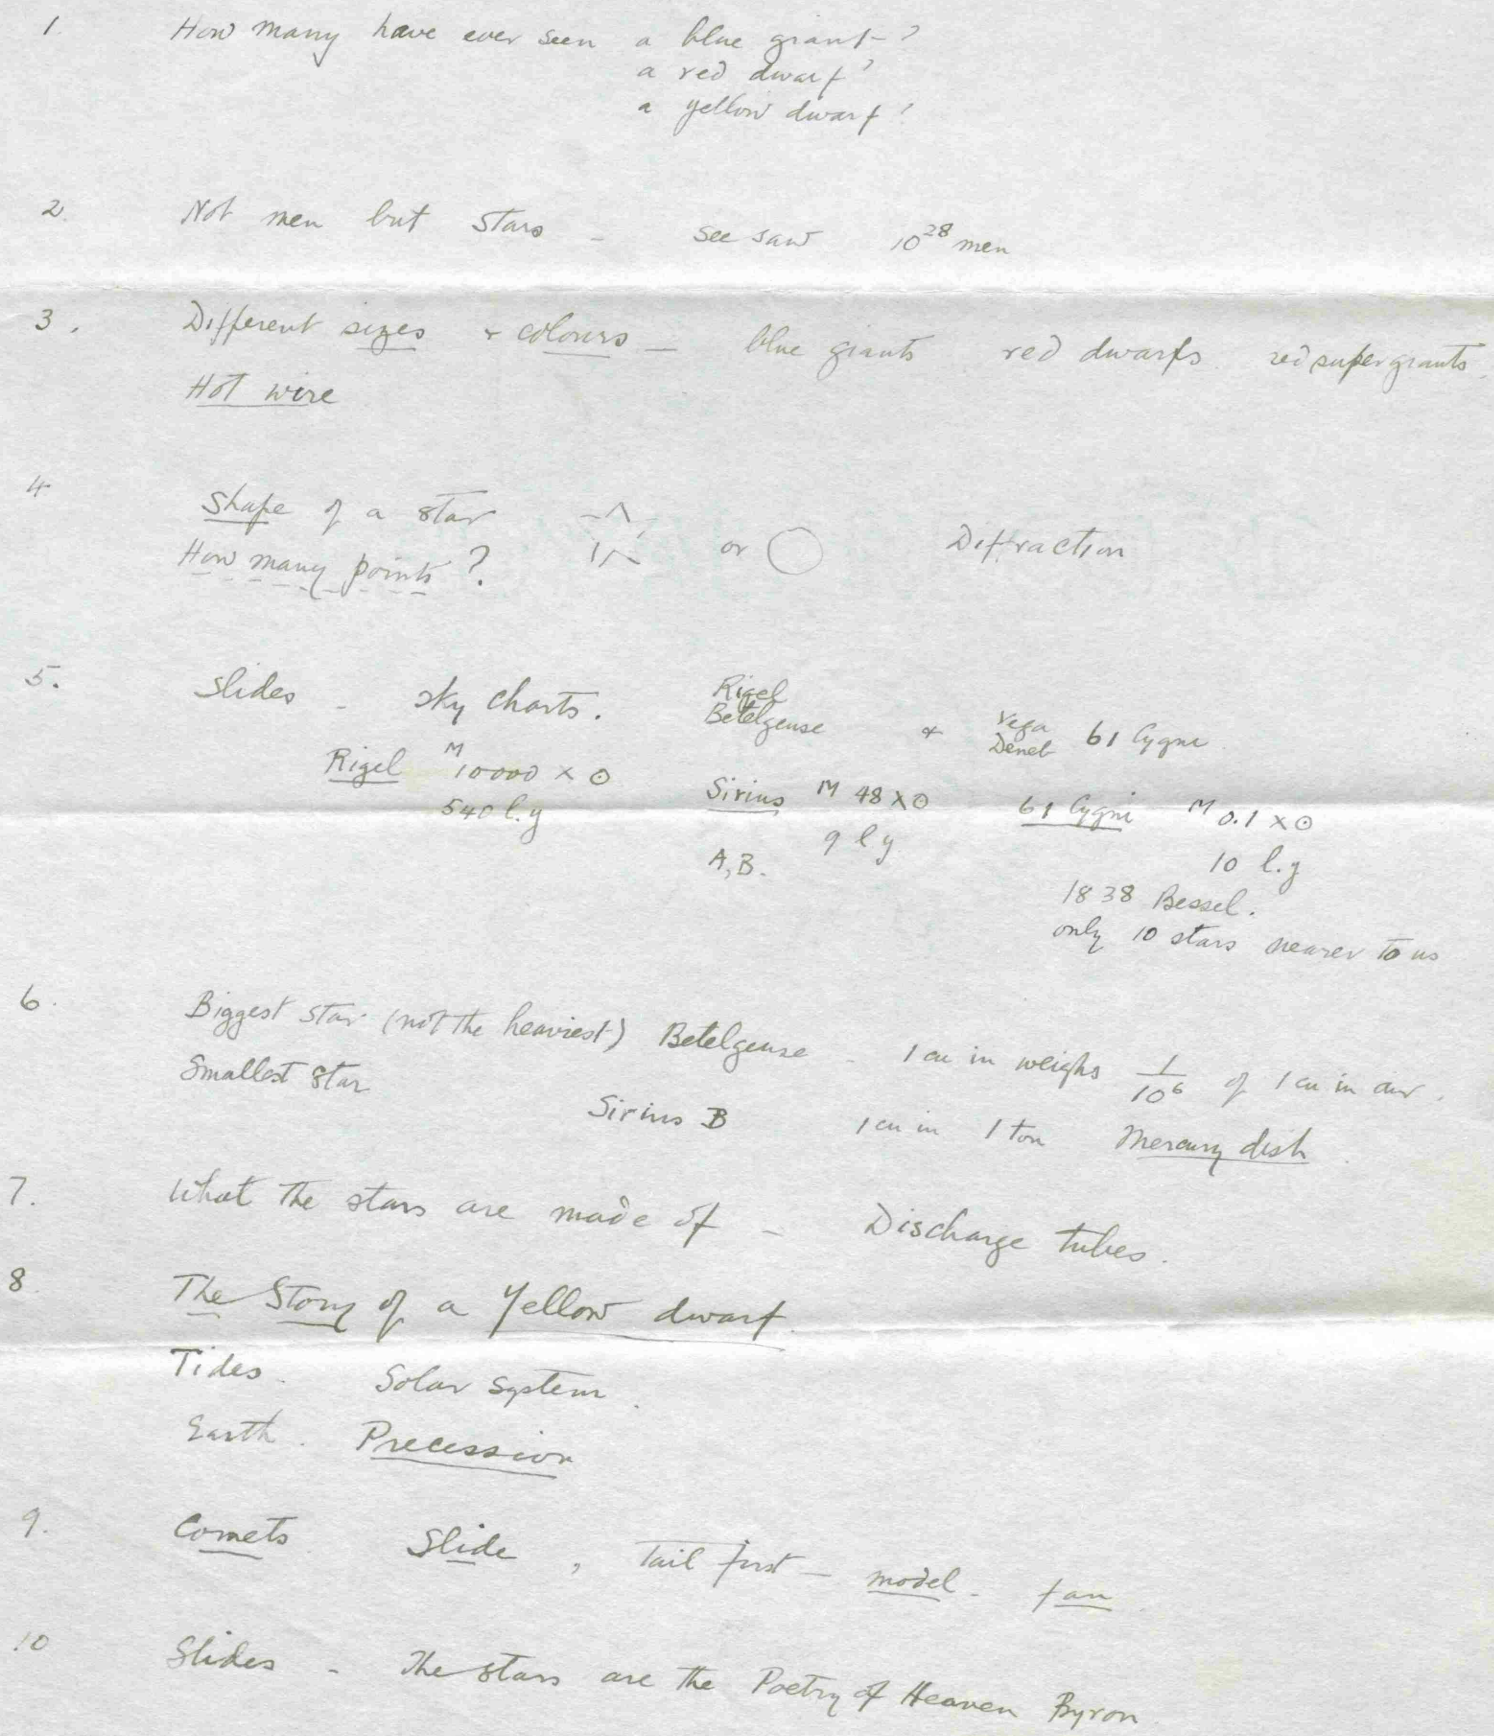 1. How many have ever seen a blue giant?
a red dwarf?
a yellow dwarf?
2. Not men but stars - see saw 10^28 men
3. Different sizes & colours - blue giants red dwarfs. red supergiants.
Hot wire
4 Shape of a star or Diffraction
How many points?
5. Slides - sky charts. Rigel Betelgeuse & Vega Deneb 61 Cygni.
Rigel M 10000 × ⊙ Sirius M 48 × ⊙ 61 Cygni M 0.1 × ⊙
540 l.y 9 l y 10 l.y
A, B. 1838 Bessel.
only 10 stars nearer to us
6. Biggest star (not the heaviest) Betelgeuse - 1 cu in weighs 1/10^6 of 1 cu in air.
Smallest star Sirius B 1 cu in 1 ton Mercury dish.
7. What the stars are made of - Discharge tubes.
8. The Story of a Yellow dwarf.
Tides. Solar System.
Earth. Precession
9. Comets. Slide, Tail first - model - fan.
10 Slides - The stars are the Poetry of Heaven Byron.